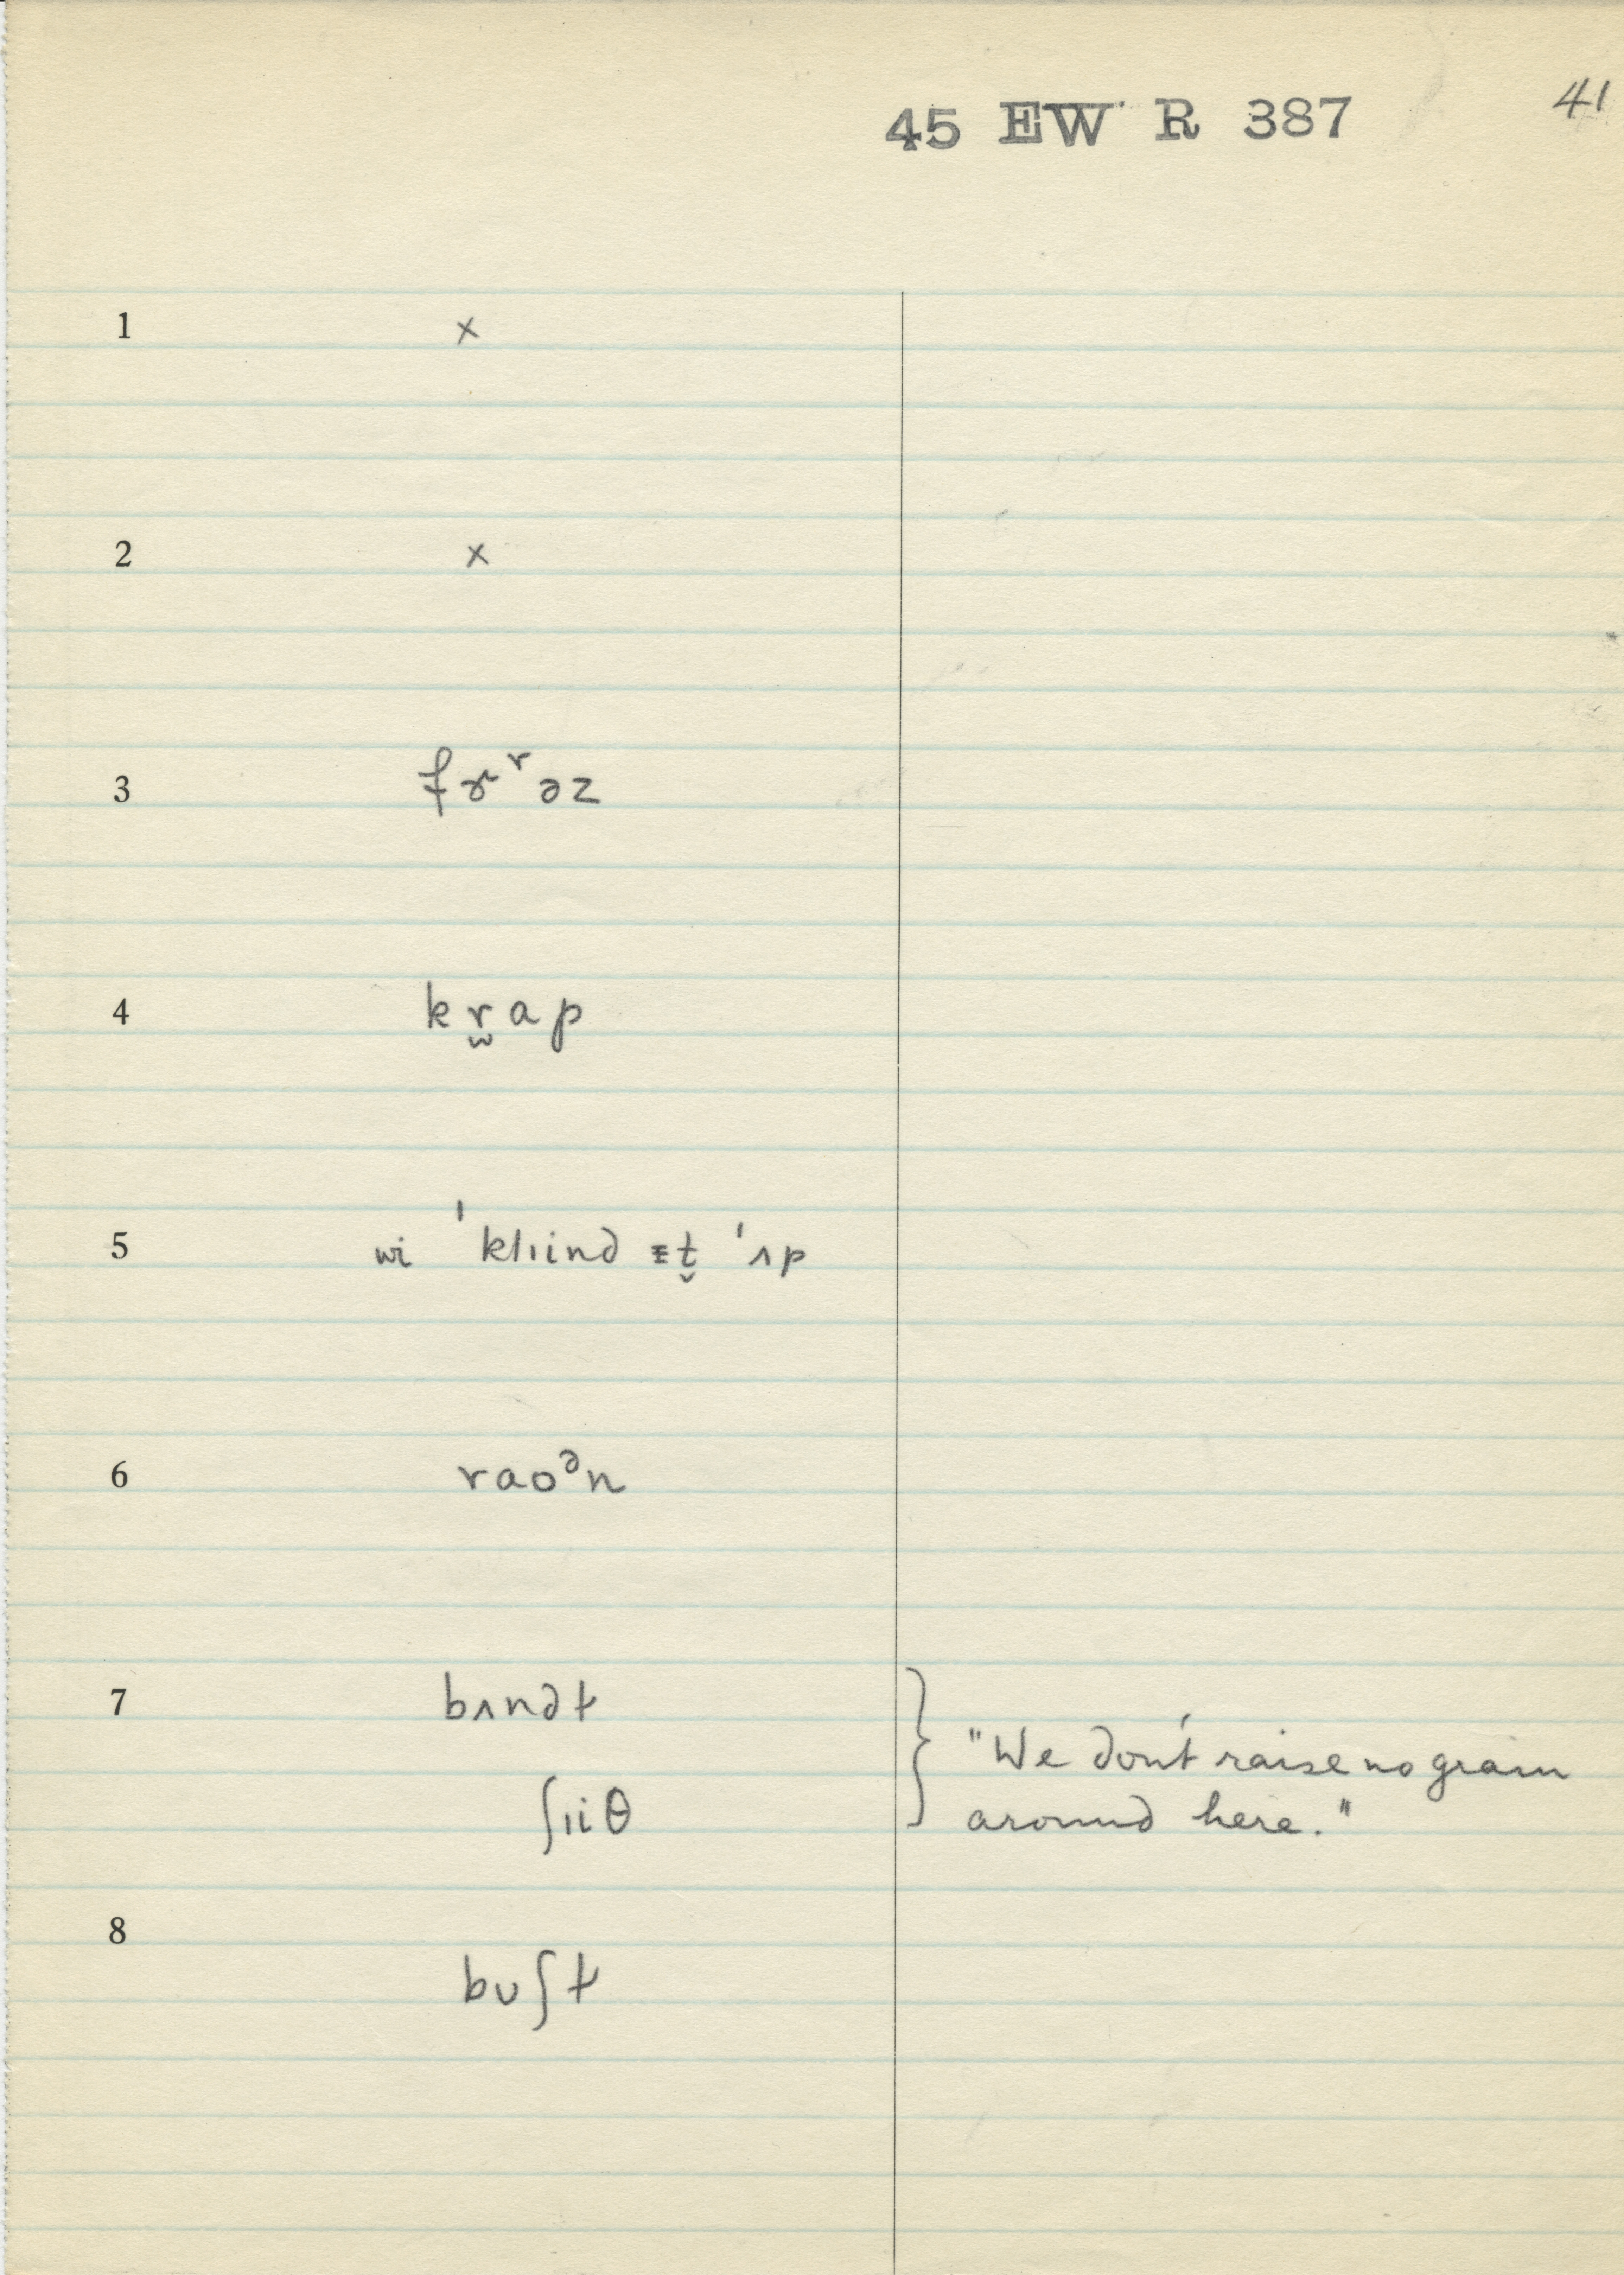 45 EW R 387
41
1 x
2 x
3 fɚʳəz
4 kr̫ap
5 wi ˈklɪind ɪt̬ ˈʌp
6 raoᵊn
7 bʌndɫ
"We don't raise no grain
ʃɪiθ
around here."
8
buʃɫ